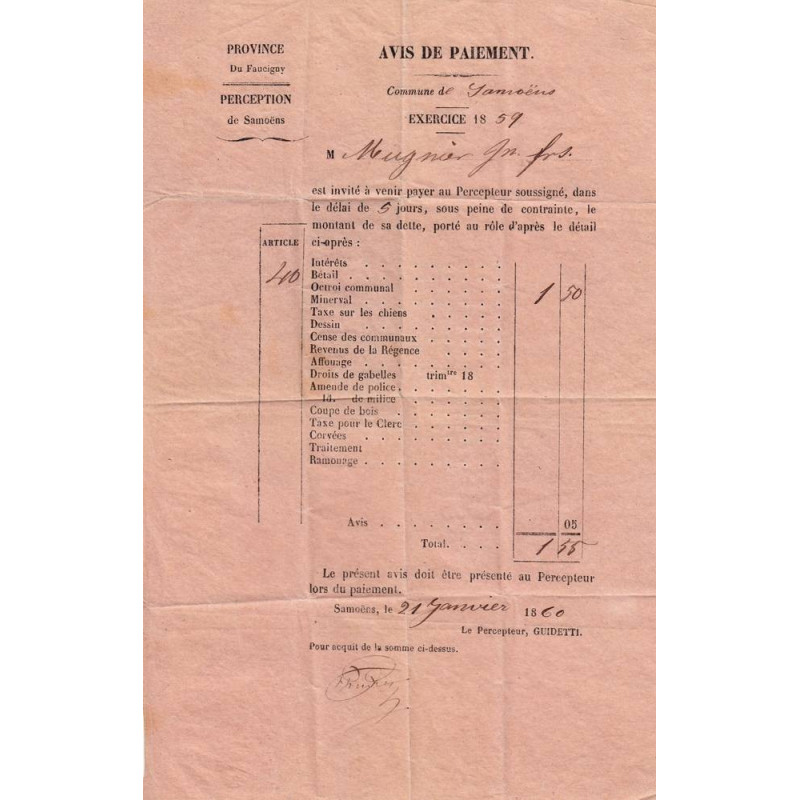 PROVINCE
Du Faucigny
PERCEPTION
de Samoëns
AVIS DE PAIEMENT.
Commune de Samoëns
EXERCICE 1859
M Mugnier Jn. frs.
est invité à venir payer au Percepteur soussigné, dans
le délai de 5 jours, sous peine de contrainte, le
montant de sa dette, porté au rôle d'après le détail
ci-après :
ARTICLE
40
Intérêts . . . . . . . . .
Bétail . . . . . . . . .
Octroi communal . . . . . . 1 50
Minerval . . . . . . . . .
Taxe sur les chiens . . . . . .
Dessin . . . . . . . . .
Cense des communaux . . . . .
Revenus de la Régence . . . . .
Affouage . . . . . . . . .
Droits de gabelles trimtre 18
Amende de police . . . . . . .
Id. de milice . . . . . . .
Coupe de bois . . . . . . . .
Taxe pour le Clerc . . . . . .
Corvées . . . . . . . . .
Traitement . . . . . . . .
Ramonage . . . . . . . . .
Avis . . . . . . . 05
Total. . . . 1 55
Le présent avis doit être présenté au Percepteur
lors du paiement.
Samoëns, le 21 Janvier 1860
Le Percepteur, GUIDETTI.
Pour acquit de la somme ci-dessus.